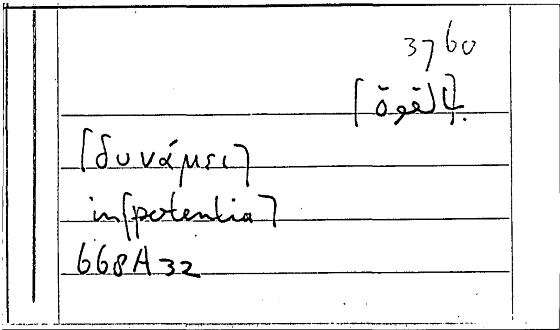 3760
ب[القوة]
[δυνάμει]
in[potentia]
668A32